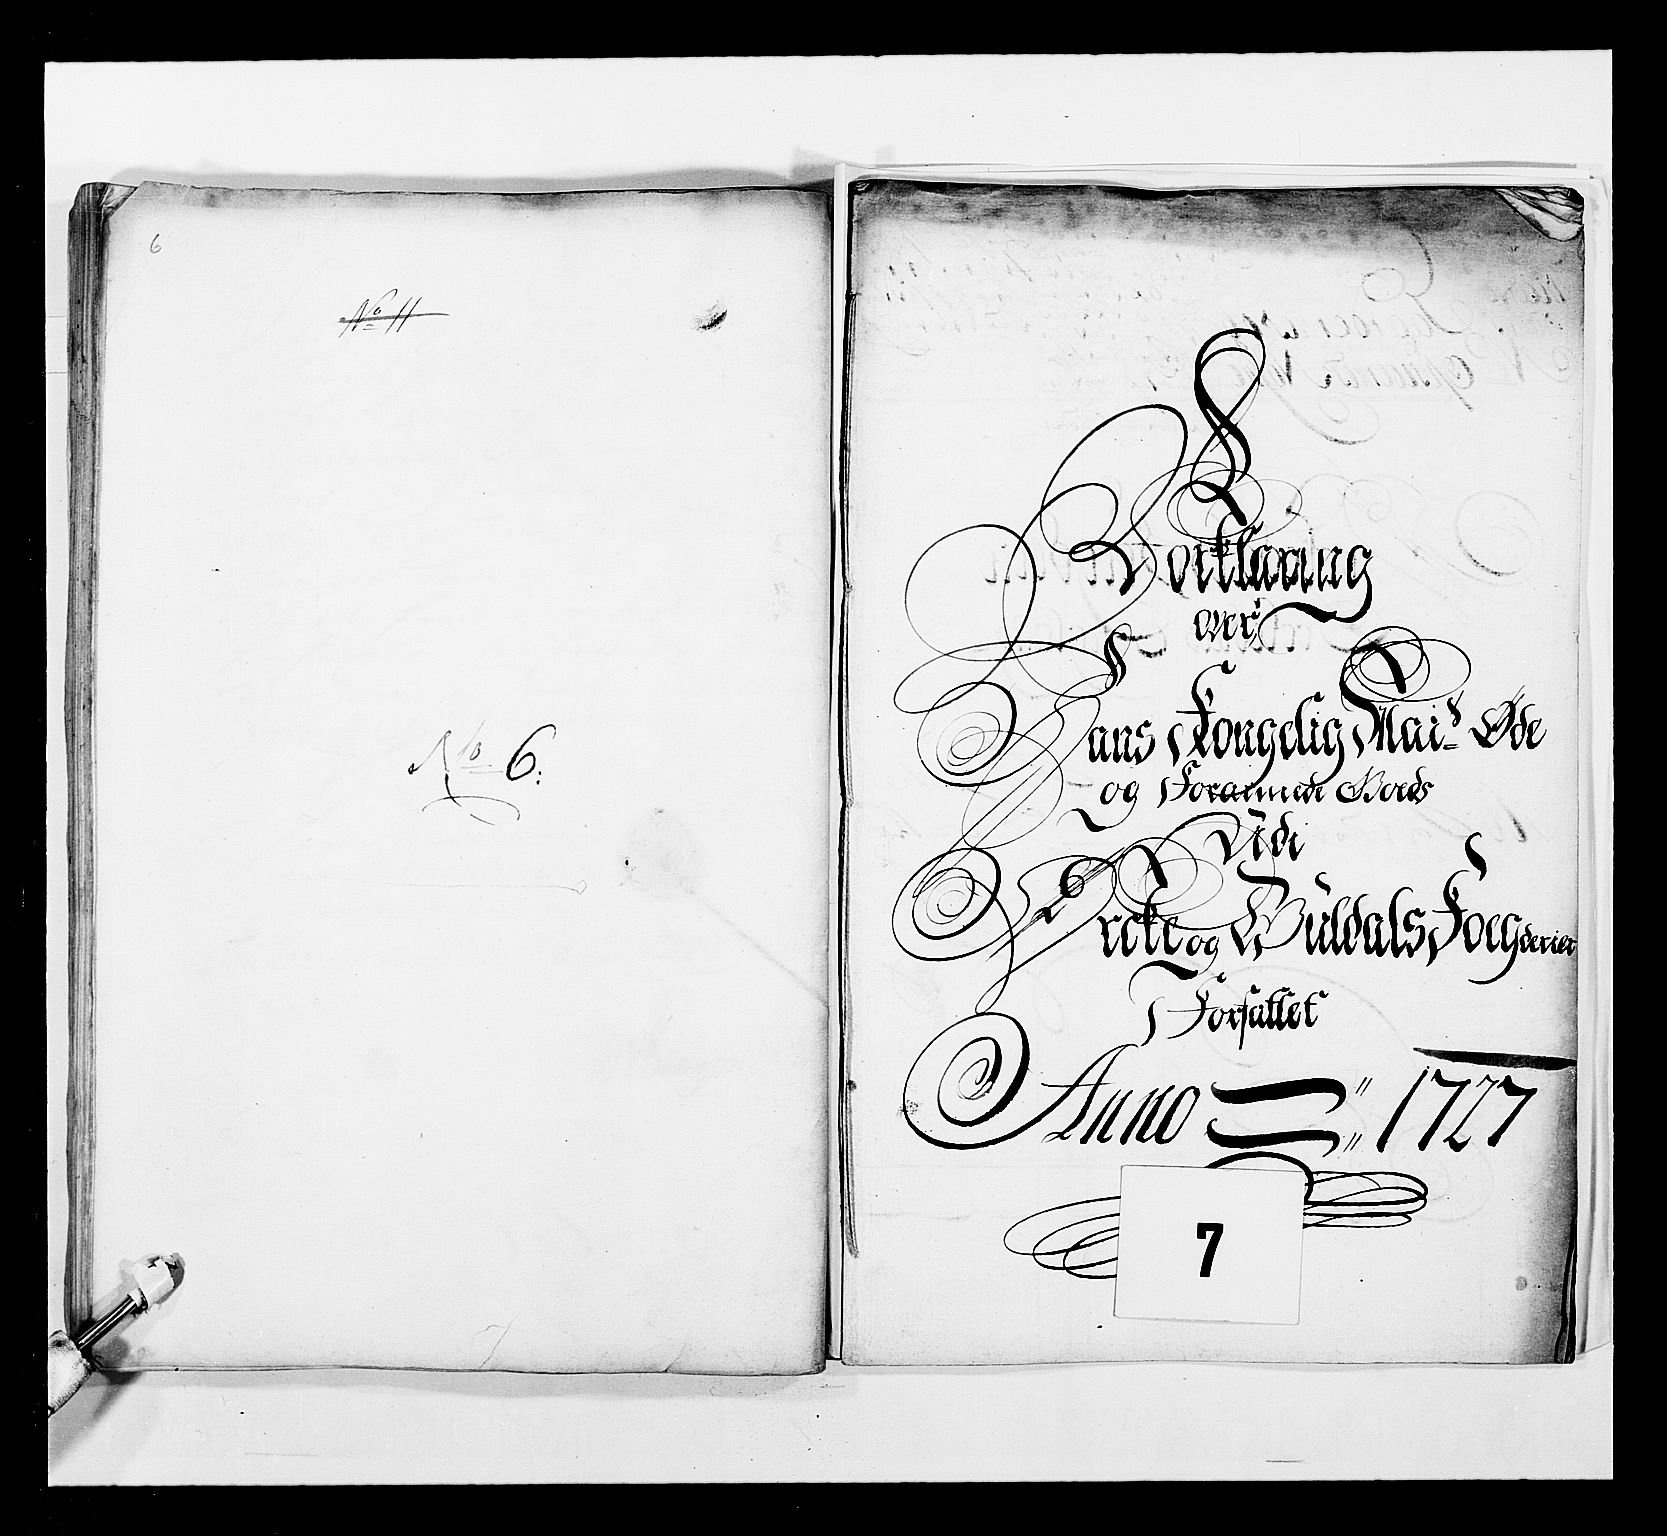 6
No 11
No 6:
Forklaring
over
Hans Kongelig Mai.s Øde
og Forarmede Goeds
Udi
Ørcke og Guldals Foegderier
Forfattet
Anno = 1727
7